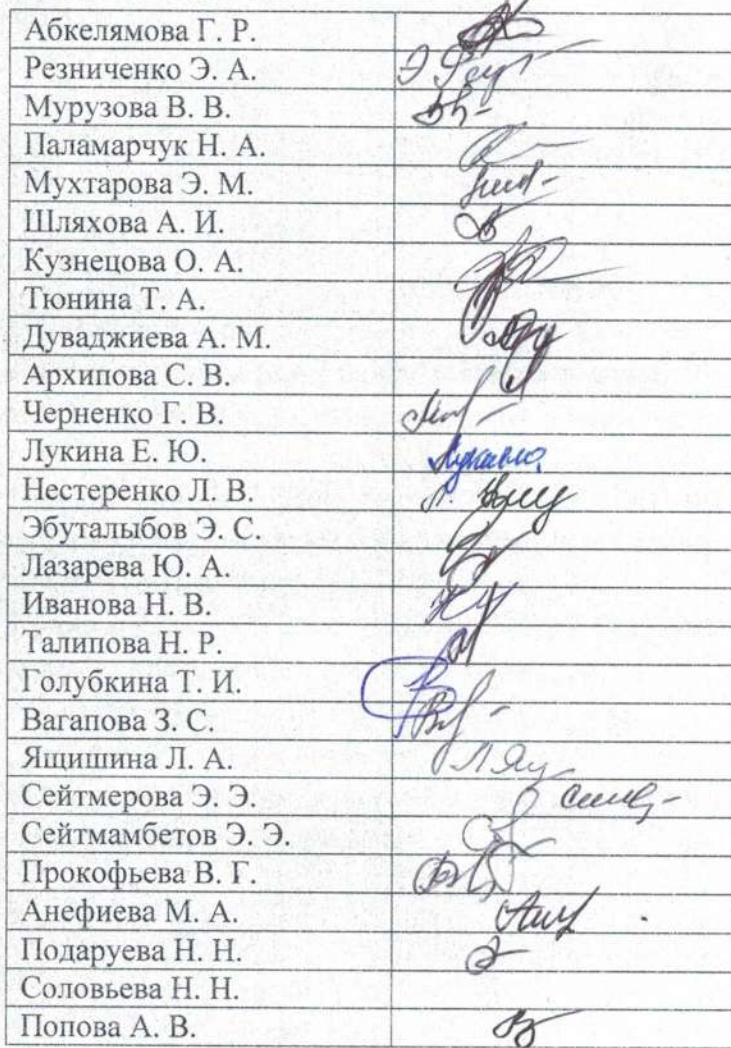 Абкелямова Г. Р.
Резниченко Э. А.
Мурузова В. В.
Паламарчук Н. А.
Мухтарова Э. М.
Шляхова А. И.
Кузнецова О. А.
Тюнина Т. А.
Дуваджиева А. М.
Архипова С. В.
Черненко Г. В.
Лукина Е. Ю.
Нестеренко Л. В.
Эбуталыбов Э. С.
Лазарева Ю. А.
Иванова Н. В.
Талипова Н. Р.
Голубкина Т. И.
Вагапова З. С.
Ящишина Л. А.
Сейтмерова Э. Э.
Сейтмамбетов Э. Э.
Прокофьева В. Г.
Анефиева М. А.
Подаруева Н. Н.
Соловьева Н. Н.
Попова А. В.